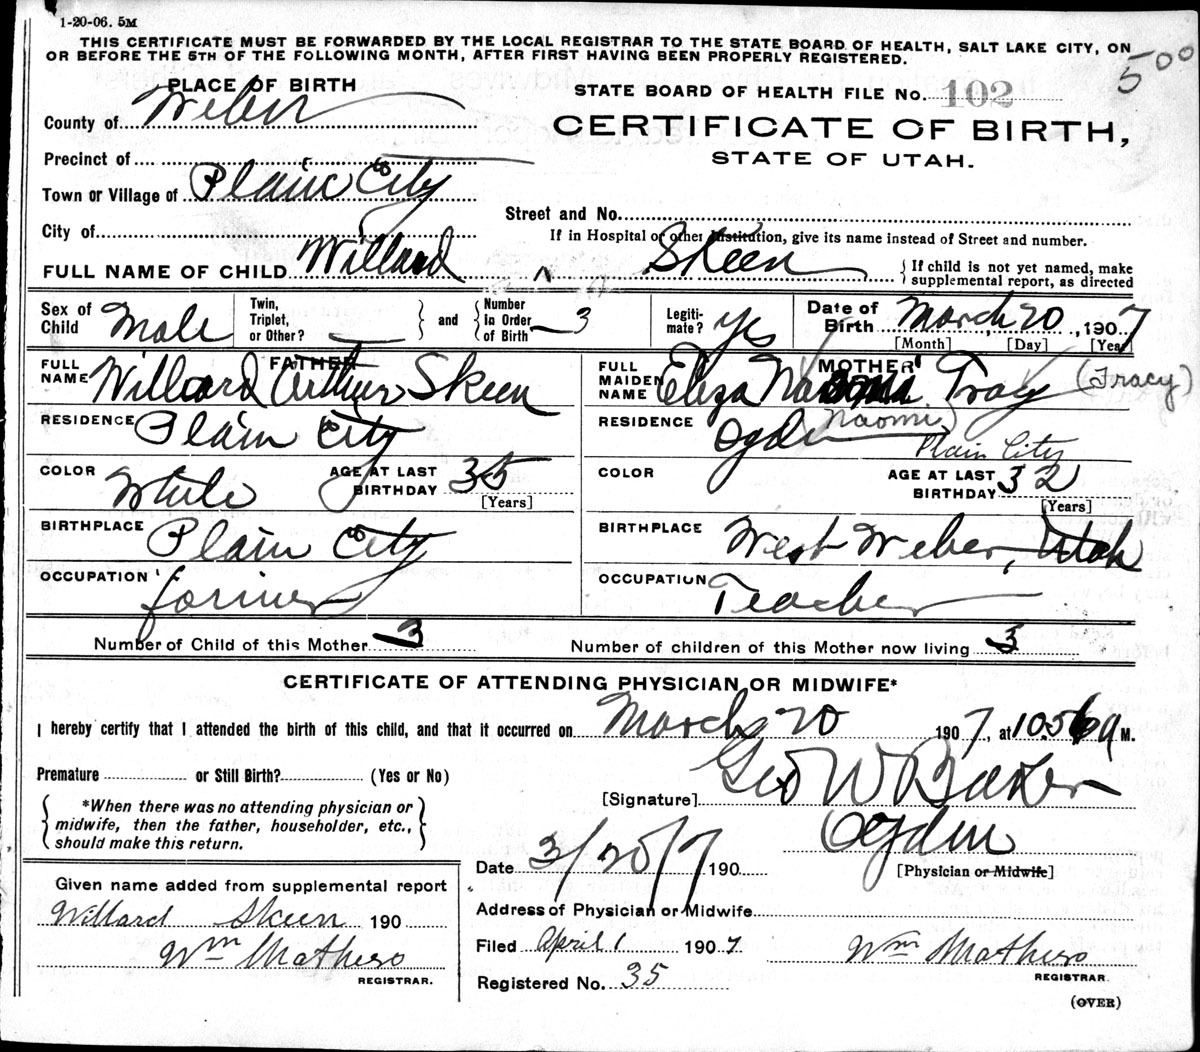 1-20-06. 5M
THIS CERTIFICATE MUST BE FORWARDED BY THE LOCAL REGISTRAR TO THE STATE BOARD OF HEALTH, SALT LAKE CITY, ON
OR BEFORE THE 5TH OF THE FOLLOWING MONTH, AFTER FIRST HAVING BEEN PROPERLY REGISTERED.
500
PLACE OF BIRTH
STATE BOARD OF HEALTH FILE No. 102
County of Weber
CERTIFICATE OF BIRTH,
STATE OF UTAH.
Precinct of
Town or Village of Plain City
Street and No.
City of
If in Hospital or other Institution, give its name instead of Street and number.
FULL NAME OF CHILD Willard Skeen
If child is not yet named, make
supplemental report, as directed
Sex of Child Male
Twin, Triplet, or Other?
and
Number in Order of Birth 3
Legiti-mate? Yes
Date of Birth March 20, 1907
[Month] [Day] [Year]
FATHER
FULL NAME Willard Arthur Skeen
RESIDENCE Plain City
COLOR White
AGE AT LAST BIRTHDAY 35
[Years]
BIRTHPLACE Plain City
OCCUPATION farmer
MOTHER
FULL MAIDEN NAME Eliza Tracy (Tracy)
Naomi
RESIDENCE Ogden
Plain City
COLOR
AGE AT LAST BIRTHDAY 32
[Years]
BIRTHPLACE West Weber, Utah
OCCUPATION Teacher
Number of Child of this Mother 3
Number of children of this Mother now living 3
CERTIFICATE OF ATTENDING PHYSICIAN OR MIDWIFE*
I hereby certify that I attended the birth of this child, and that it occurred on March 20 1907, at M.
Premature or Still Birth? (Yes or No)
[Signature] Geo W Baker
*When there was no attending physician or
midwife, then the father, householder, etc.,
should make this return.
Ogden
[Physician or Midwife]
Date 3/20/7 190
Address of Physician or Midwife
Given name added from supplemental report
Willard Skeen 190
Wm Mathers
REGISTRAR.
Filed April 1 1907
Wm Mathers
REGISTRAR.
Registered No. 35
(OVER)